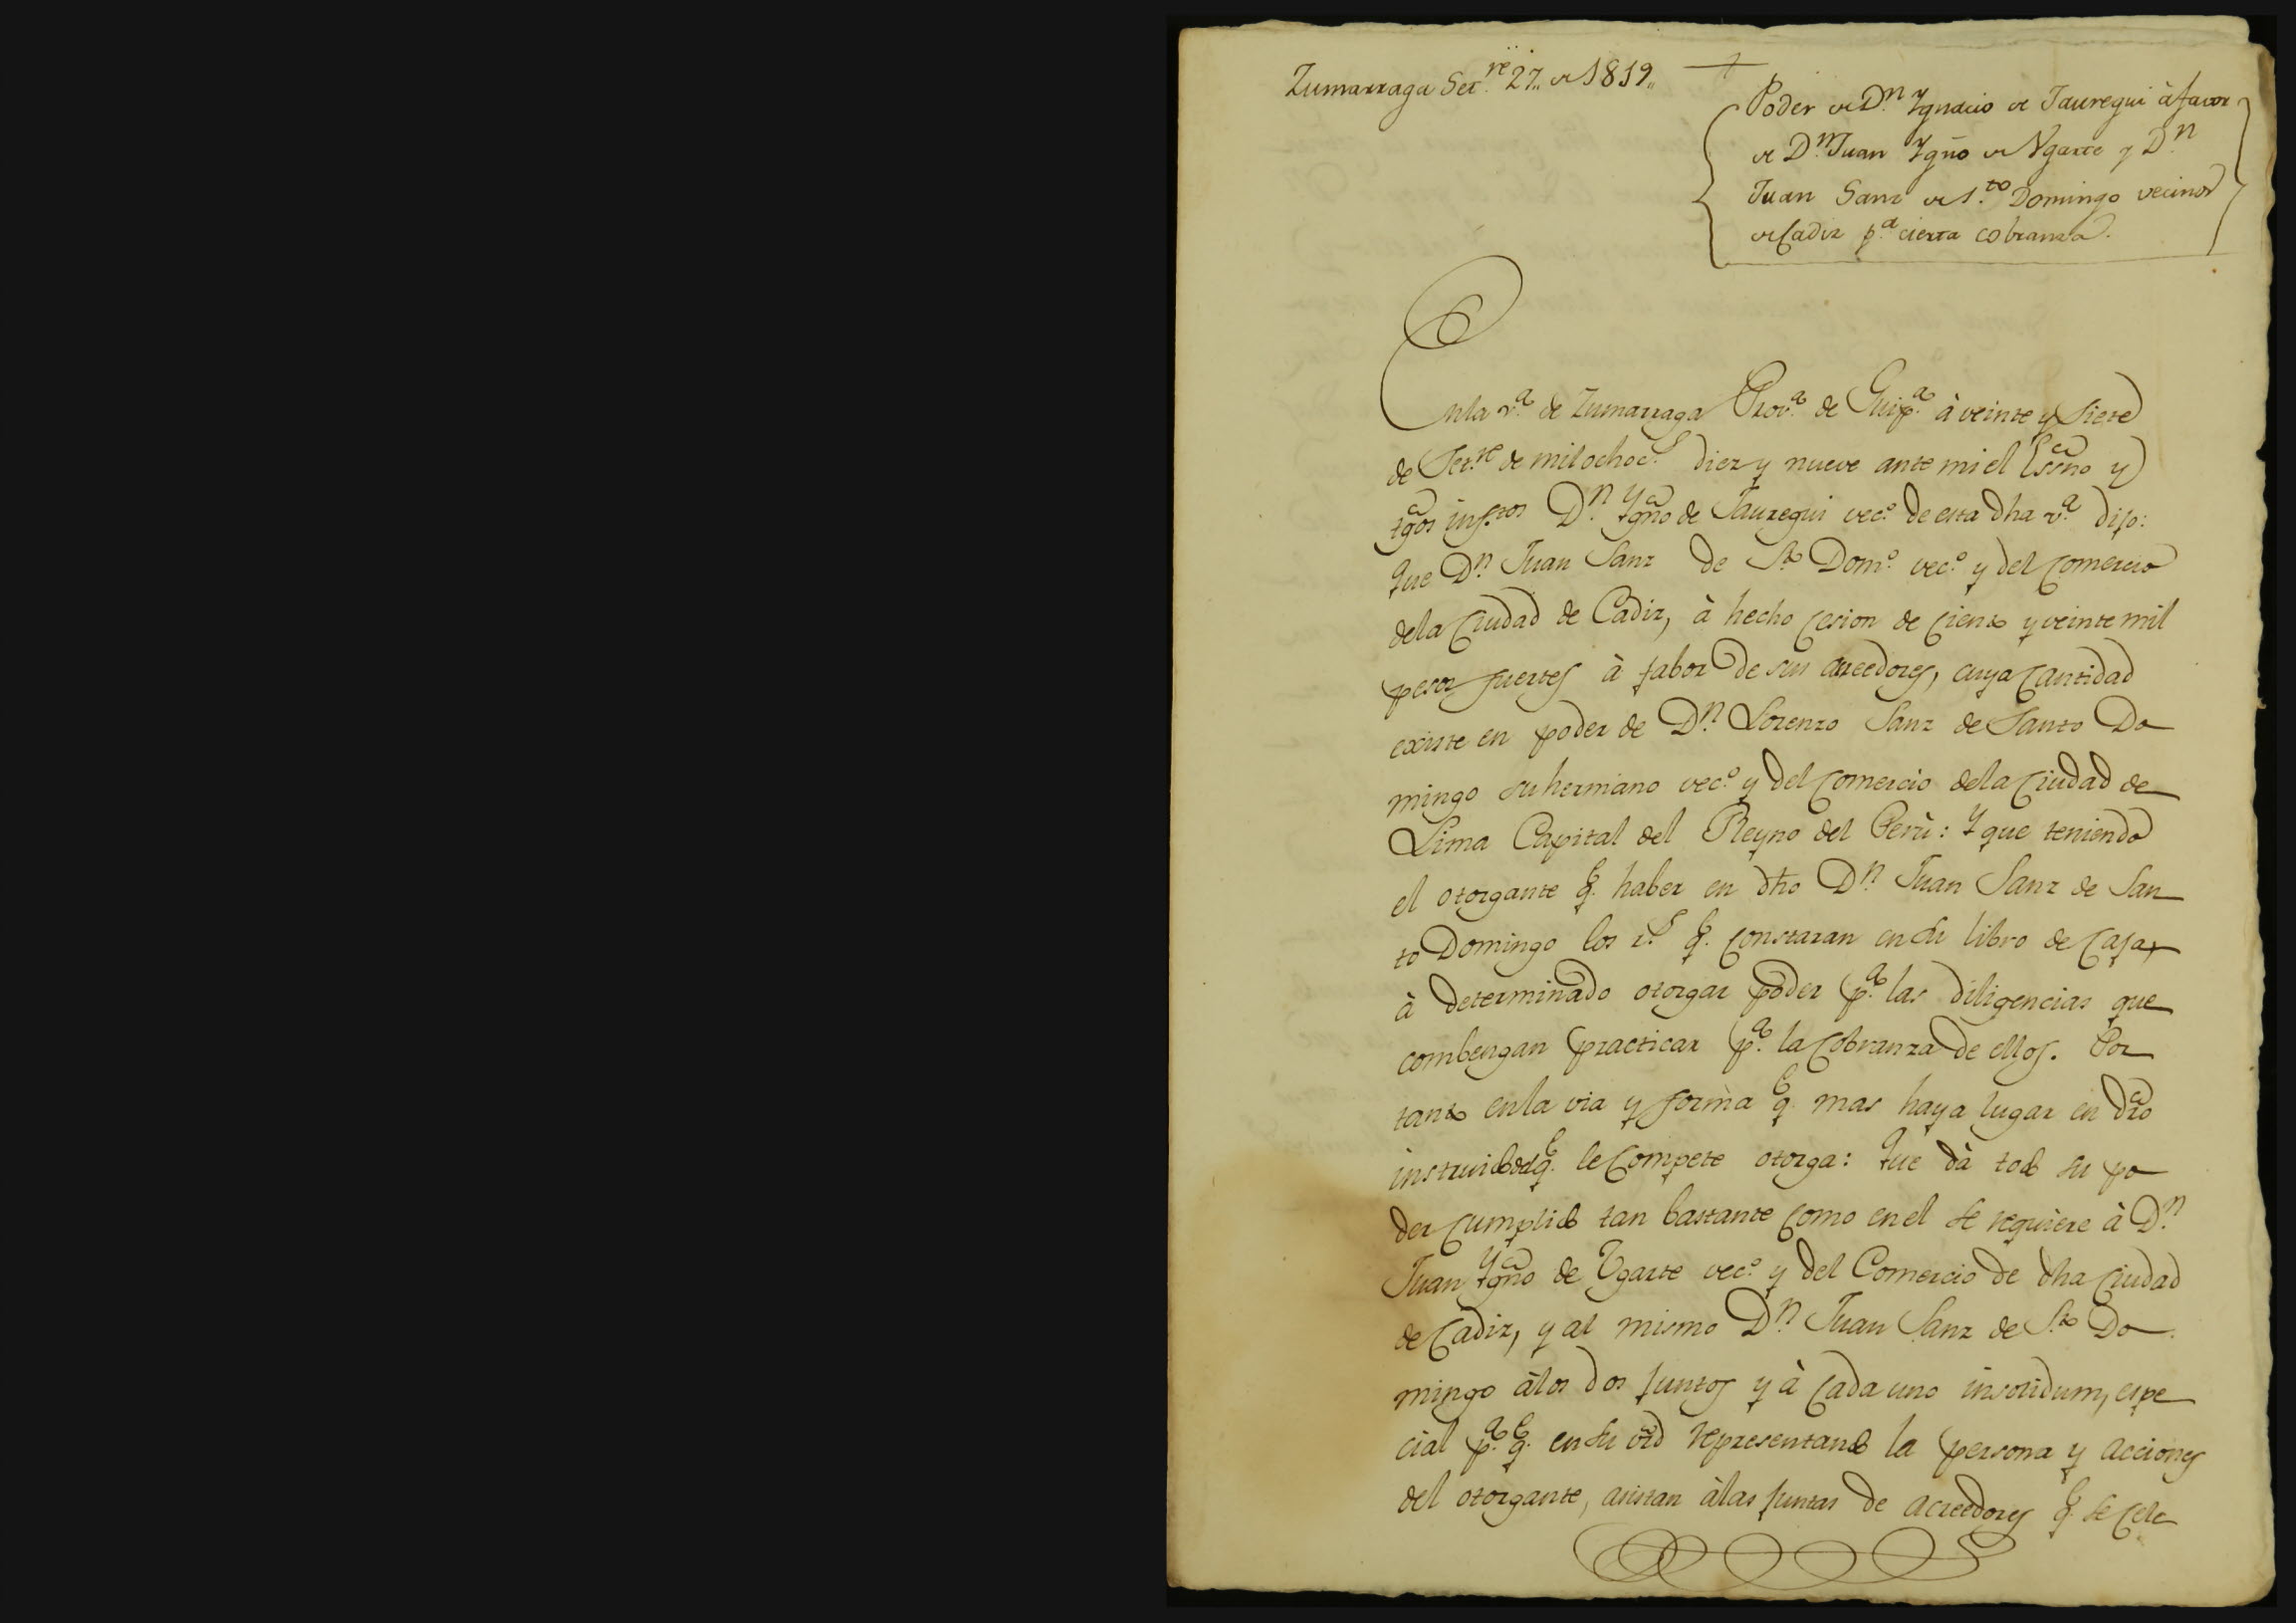 Zumarraga Set.re 27,, de 1819,,
Poder de D.n Ygnacio de Jauregui à favor
de D.n Juan Ygño de Vgarte y D.n
Juan Sanz de S.to Domingo vecinos
de Cadiz p.a cierta cobranza.
Enla v.a de Zumarraga Prov.a de Guip.a à veinte y siete
de Set.re de mil ochoc.s diez y nueve ante mi el Essno y
tgos infros D.n Ygño de Jauregui vec.o de esta dha v.a dijo:
Que D.n Juan Sanz de S.to Dom.o vec.o y del Comercio
dela Ciudad de Cadiz, à hecho cesion de ciento y veinte mil
pesos fuertes à fabor de sus acreedores, cuya cantidad
existe en poder de D.n Lorenzo Sanz de Santo Do
mingo su hermano vec.o y del Comercio dela Ciudad de
Lima Capital del Reyno del Perù: Y que teniendo
el otorgante q.e haber en dho D.n Juan Sanz de San
to Domingo los r.s q.e constaran en su libro de Caja,
à determinado otorgar poder p.a las diligencias que
combengan practicar p.a la Cobranza de ellos. Por
tanto enla via y forma q.e mas haya lugar en dro
instruido del q.e le Compete otorga: Que dà todo su po
der Cumplido tan bastante como en el se requiere à D.n
Juan Ygño de Ugarte vec.o y del Comercio de dha Ciudad
de Cadiz, y al mismo D.n Juan Sanz de S.to Do
mingo àlos dos juntos y à cada uno insolidum, espe
cial p.a q.e en su vrd representando la persona y acciones
del otorgante, asistan àlas juntas de acreedores q.e se cele